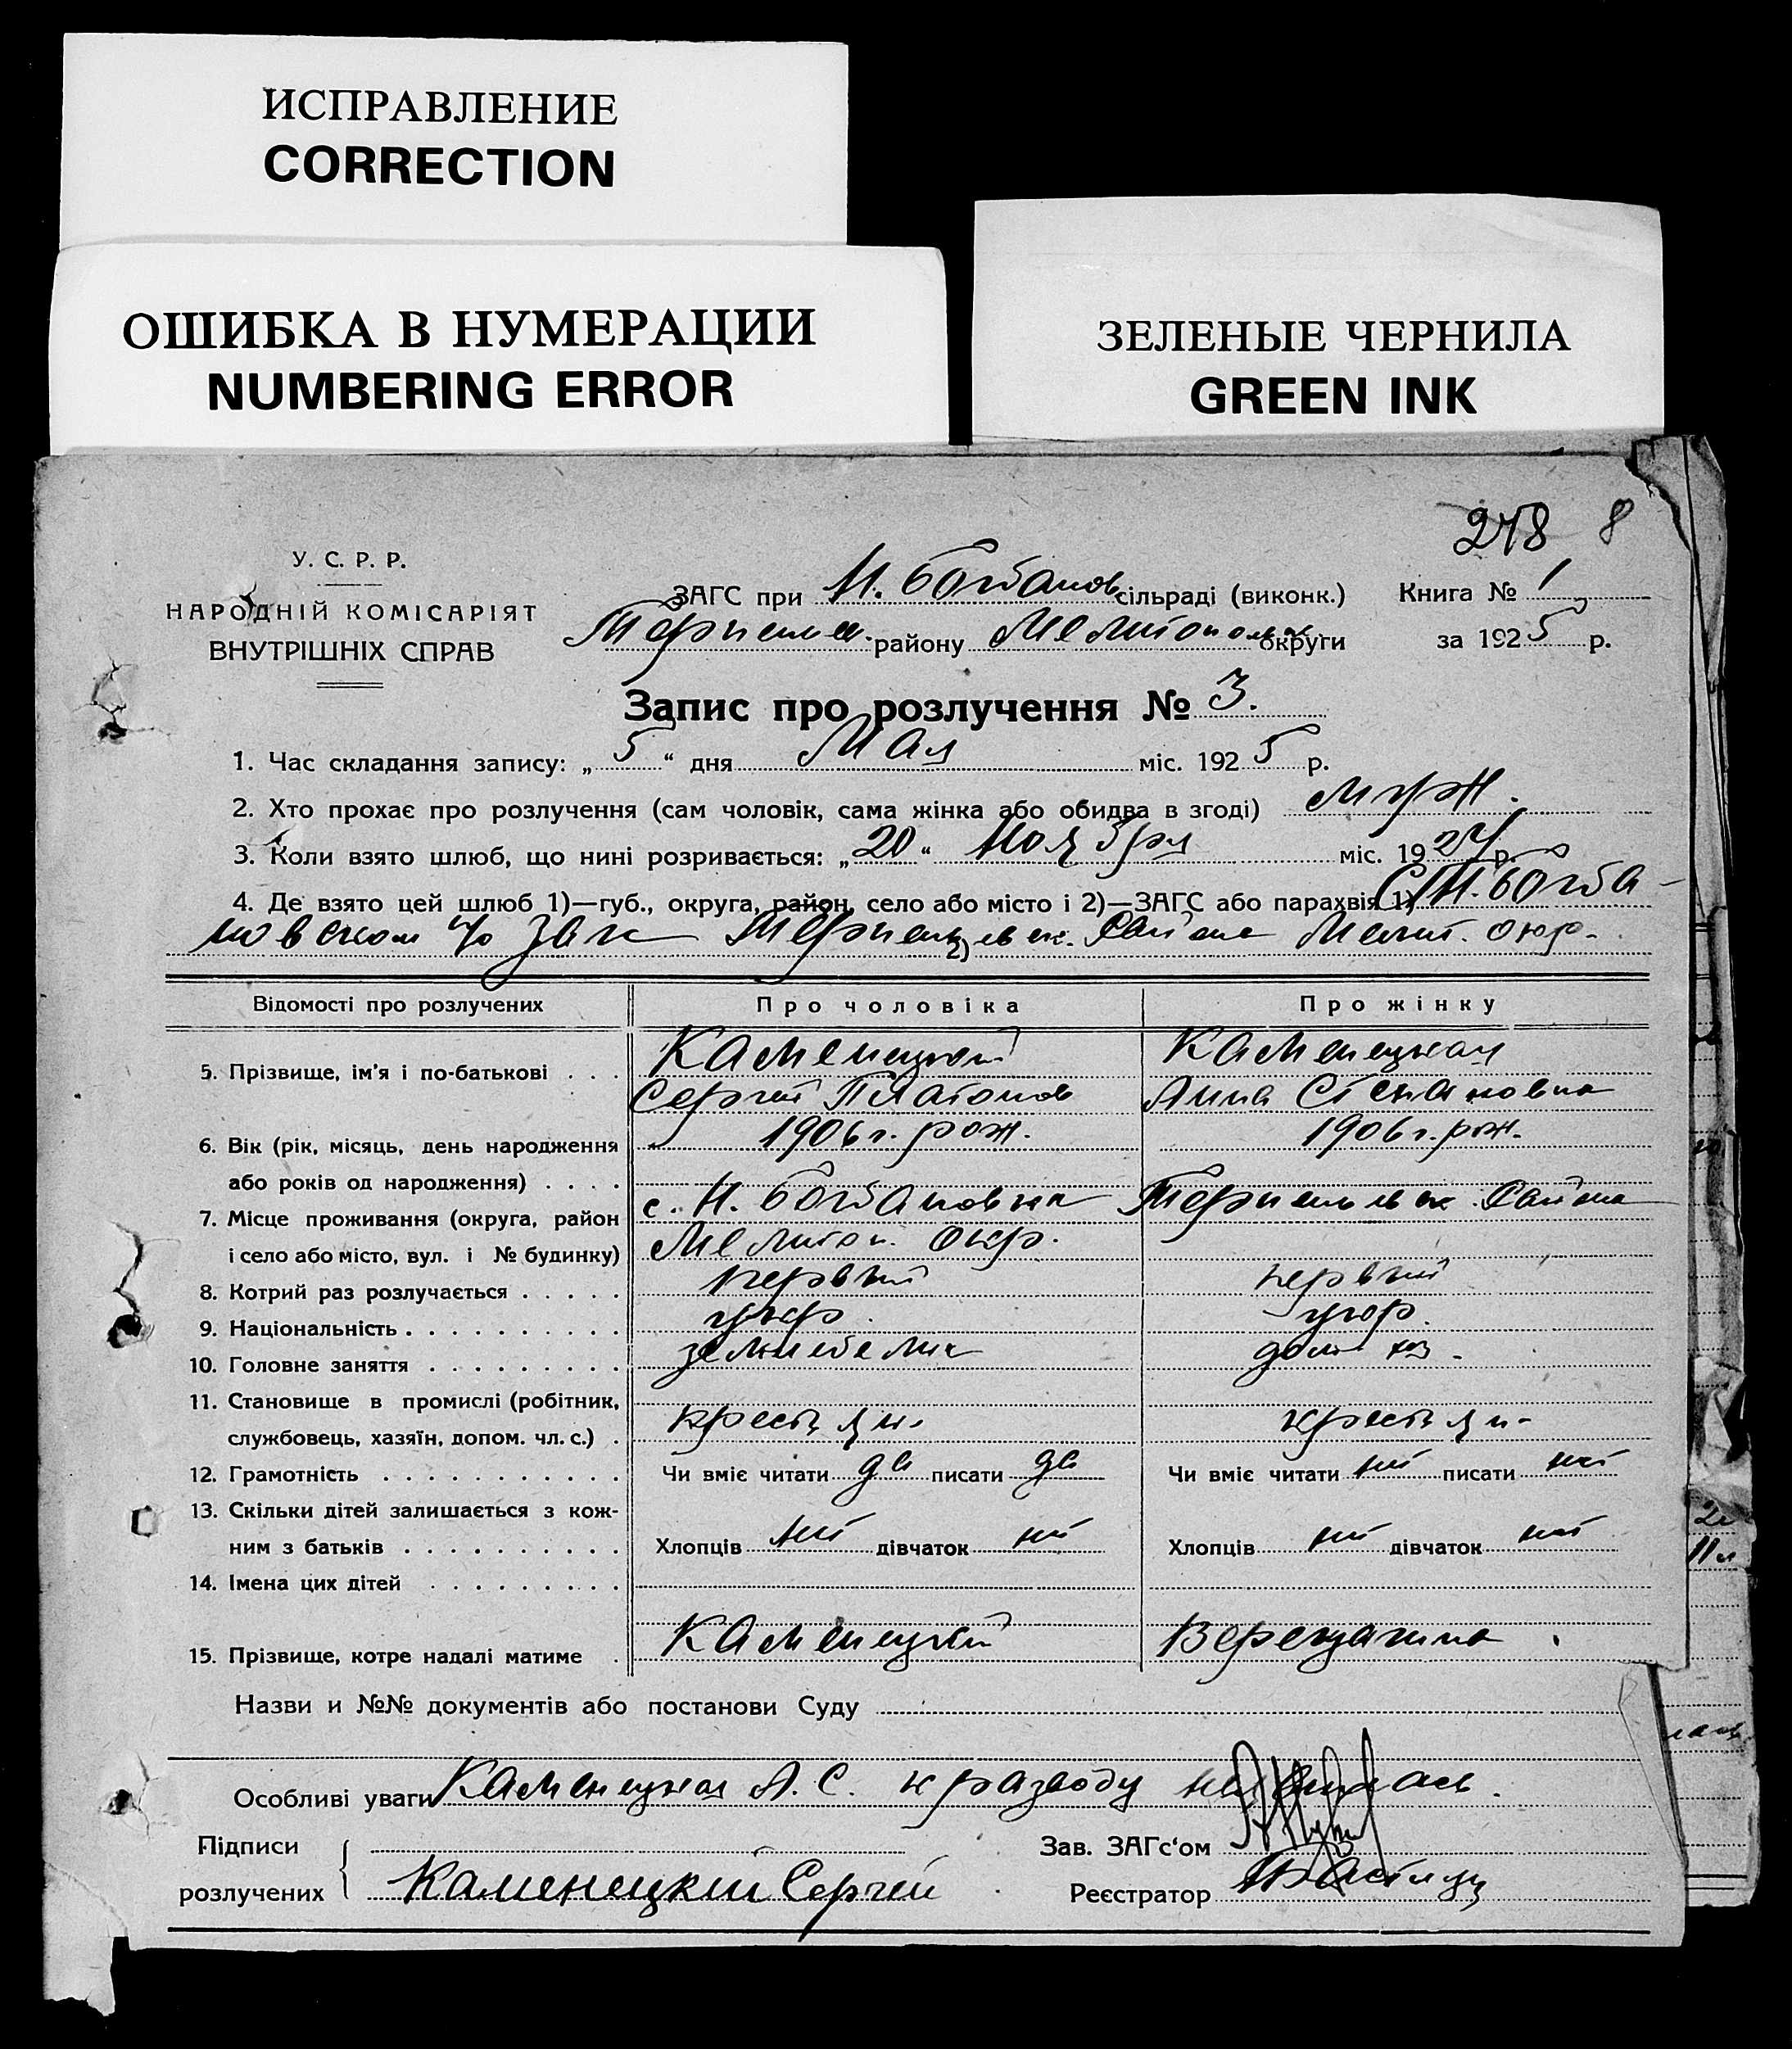 ИСПРАВЛЕНИЕ
CORRECTION
ОШИБКА В НУМЕРАЦИИ
NUMBERING ERROR
ЗЕЛЕНЫЕ ЧЕРНИЛА
GREEN INK
278 8
У. С. Р. Р.
НАРОДНІЙ КОМІСАРІЯТ
ВНУТРІШНІХ СПРАВ
ЗАГС при Н. Богданов сільраді (виконк.) Книга № 1
району Мелитопольск округи за 1925 р.
Запис про розлучення № 3.
1. Час складання запису: „ 5 “ дня Мая міс. 1925 р.
2. Хто прохає про розлучення (сам чоловік, сама жінка або обидва в згоді) муж.
3. Коли взято шлюб, що нині розривається: „20“ Ноября міс. 1924 р.
4. Де взято цей шлюб 1)—губ., округа, район, село або місто і 2)—ЗАГС або парахвія 1) Н. Богда-
новском 2) Района Мелит. окр.
Відомості про розлучених Про чоловіка Про жінку
5. Прізвище, ім'я і по-батькові . . . Каменецкий Каменецкая
Сергей Платонов Анна Степановна
6. Вік (рік, місяць, день народження 1906 г. рож. 1906 г. рож.
або років од народження) . . . .
7. Місце проживання (округа, район с. Н. Богдановка Района
і село або місто, вул. і № будинку) Мелитоп. Окр.
8. Котрий раз розлучається . . . . . первый первый
9. Національність . . . . . . . . . . укр. укр.
10. Головне заняття . . . . . . . . . земледелие дом. хоз.
11. Становище в промислі (робітник,
службовець, хазяїн, допом. чл. с.) . крестьян. крестьян-
12. Грамотність . . . . . . . . . . . Чи вміє читати да писати да Чи вміє читати ні писати ні
13. Скільки дітей залишається з кож-
ним з батьків . . . . . . . . . . Хлопців ні дівчаток ні Хлопців ні дівчаток ні
14. Імена цих дітей . . . . . . . . .
15. Прізвище, котре надалі матиме . Каменецкий Верещагина
Назви и №№ документів або постанови Суду
Особливі уваги Каменецкая А. С. к разводу не явилась.
Підписи Зав. ЗАГс‘ом
розлучених Каменецкий Сергей Реєстратор